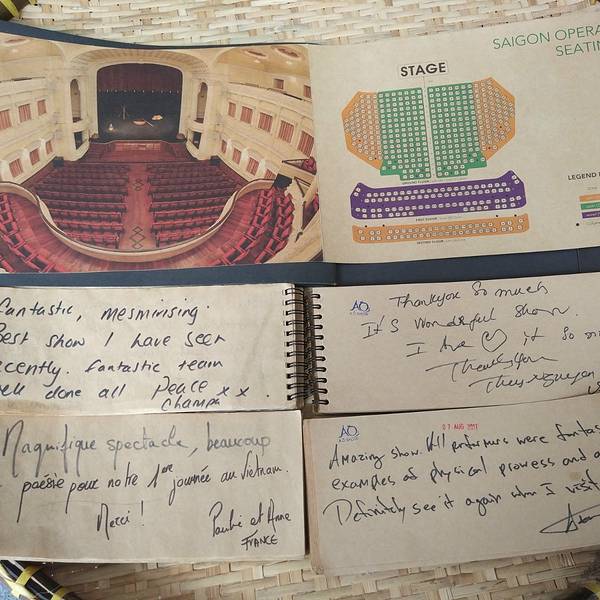 SAIGON OPERA
SEATIN
STAGE
GROUND FLOOR
FIRST FLOOR
SECOND FLOOR
LEGEND
fantastic, mesmirising.
Best show I have seen
recently. fantastic team
well done all Peace x x
Champa
AO
Thankyou so much
It's wonderful show.
I love it so
Thankyou
AO
07 AUG 2017
Magnifique spectacle, beaucoup
poésie pour notre 1ère journée au Vietnam.
Merci !
et Anne
FRANCE
Amazing show. All performers were fantas
examples of physical prowess and a
Definitely see it again when I visit